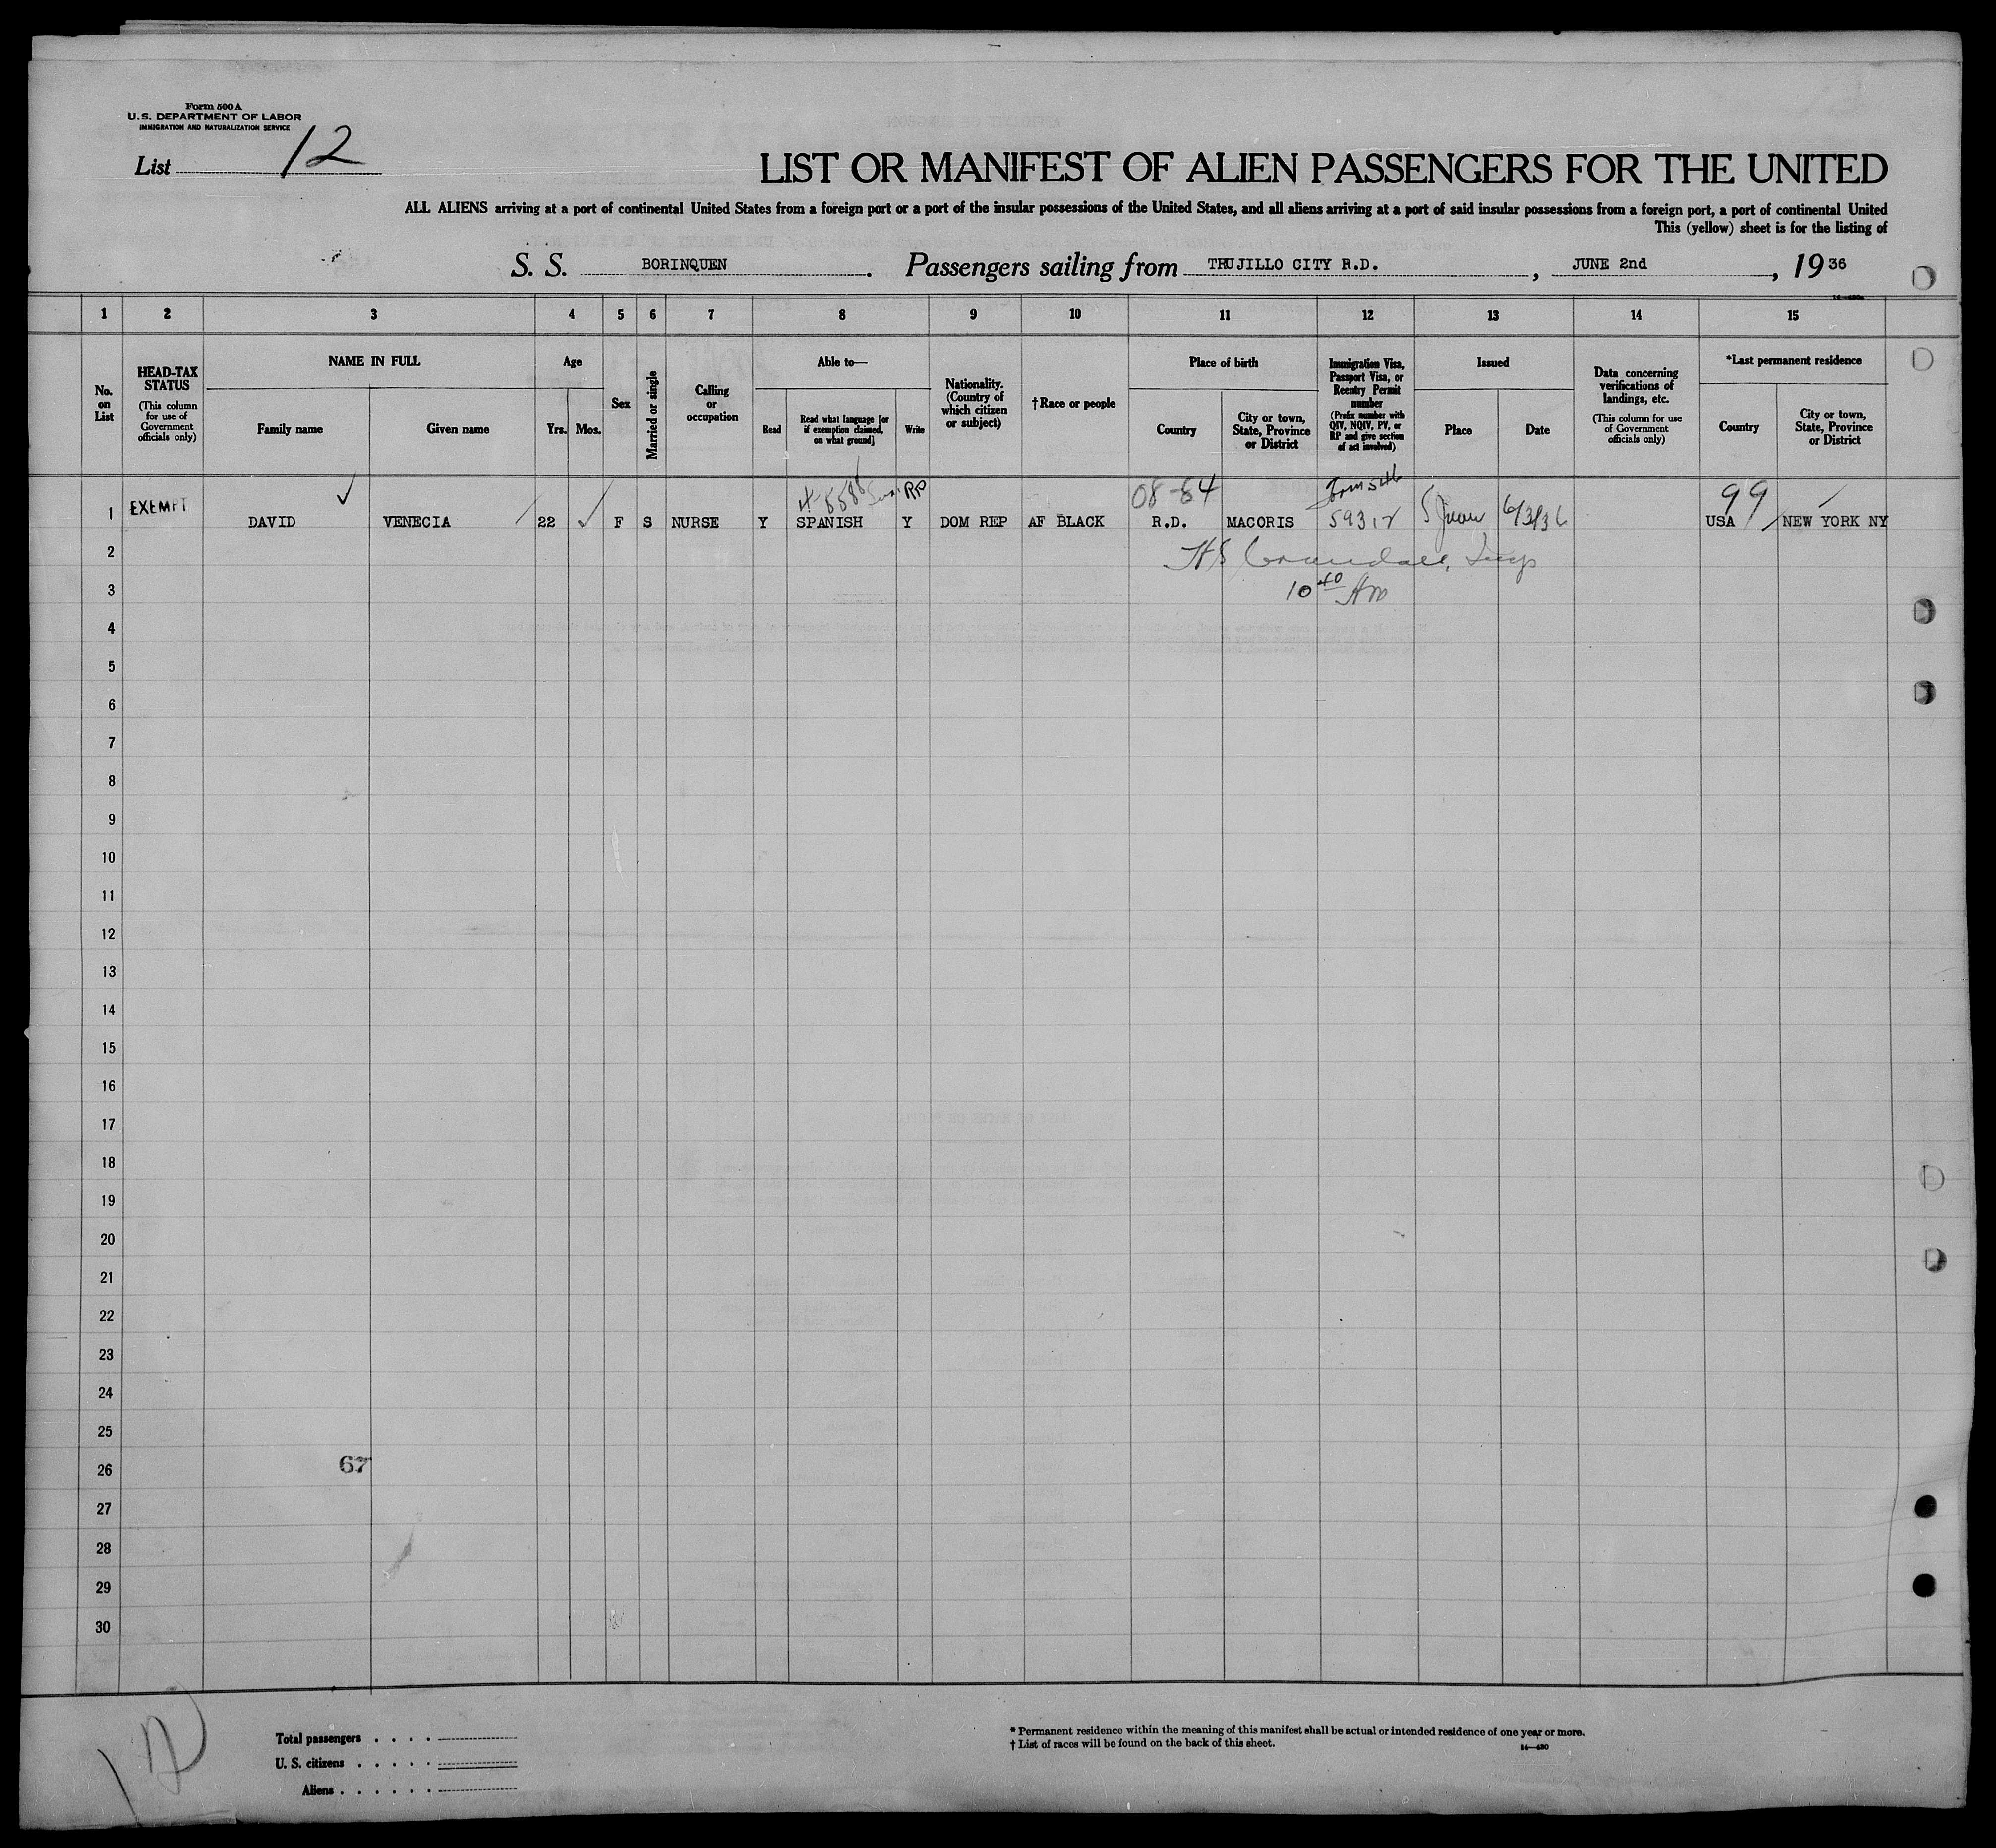 Form 500 A
U. S. DEPARTMENT OF LABOR
IMMIGRATION AND NATURALIZATION SERVICE
List 12
LIST OR MANIFEST OF ALIEN PASSENGERS FOR THE UNITED
ALL ALIENS arriving at a port of continental United States from a foreign port or a port of the insular possessions of the United States, and all aliens arriving at a port of said insular possessions from a foreign port, a port of continental United
This (yellow) sheet is for the listing of
S. S. BORINQUEN. Passengers sailing from TRUJILLO CITY R.D., JUNE 2nd, 1936
1 2 3 4 5 6 7 8 9 10 11 12 13 14 15
No. on List
HEAD-TAX STATUS
(This column for use of Government officials only)
NAME IN FULL
Family name
Given name
Age
Yrs. Mos.
Sex
Married or single
Calling or occupation
Able to—
Read
Read what language [or if exemption claimed, on what ground]
Write
Nationality. (Country of which citizen or subject)
†Race or people
Place of birth
Country
City or town, State, Province or District
Immigration Visa, Passport Visa, or Reentry Permit number
(Prefix number with QIV, NQIV, PV, or RP and give section of act involved)
Issued
Place
Date
Data concerning verifications of landings, etc.
(This column for use of Government officials only)
*Last permanent residence
Country
City or town, State, Province or District
RP 08-64 Form 546 99
1 EXEMPT DAVID VENECIA 22 F S NURSE Y SPANISH Y DOM REP AF BLACK R.D. MACORIS 59312 S Juan 6/3/36 USA NEW YORK NY
2
10 40 Am
3
4
5
6
7
8
9
10
11
12
13
14
15
16
17
18
19
20
21
22
23
24
25
26 67
27
28
29
30
12
Total passengers
U. S. citizens
Aliens
* Permanent residence within the meaning of this manifest shall be actual or intended residence of one year or more.
† List of races will be found on the back of this sheet.
14—430